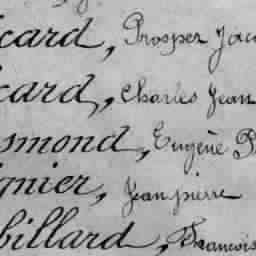 icard, Prosper Jac
card, Charles Jean
smond, Eugène P
gnier, Jean pierre
billard, Francois